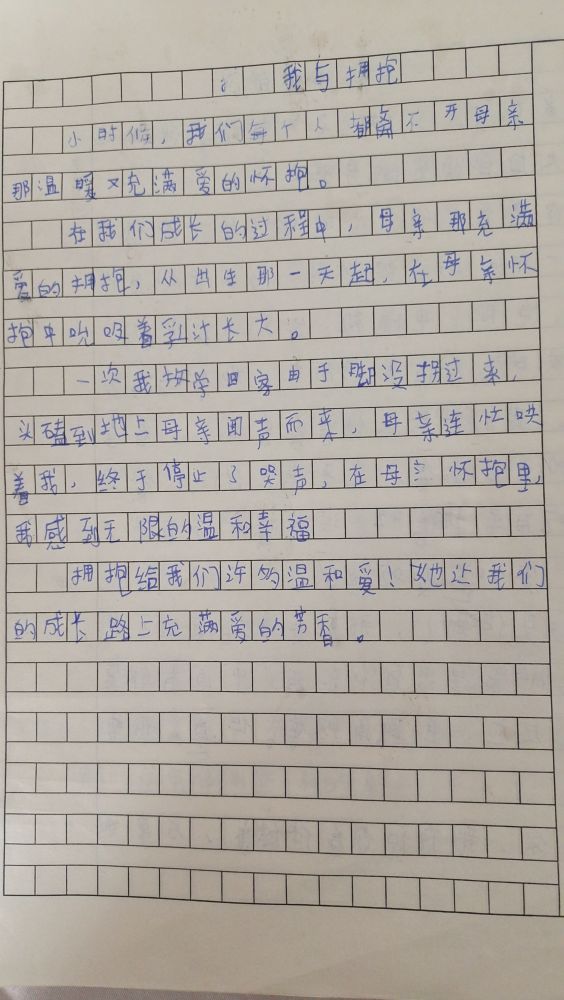 我与拥抱
小时候，我们每个人都离不开母亲
那温暖又充满爱的怀抱。
在我们成长的过程中，母亲那充满
爱的拥抱，从出生那一天起，在母亲怀
抱中吮吸着乳汁长大。
一次我放学回家由于脚没拐过来，
头磕到地上母亲闻声而来，母亲连忙哄
着我，终于停止了哭声，在母 怀抱里，
我感到无限的温和幸福
拥抱给我们许的温和爱！她让我们
的成长路上充满爱的芳香。